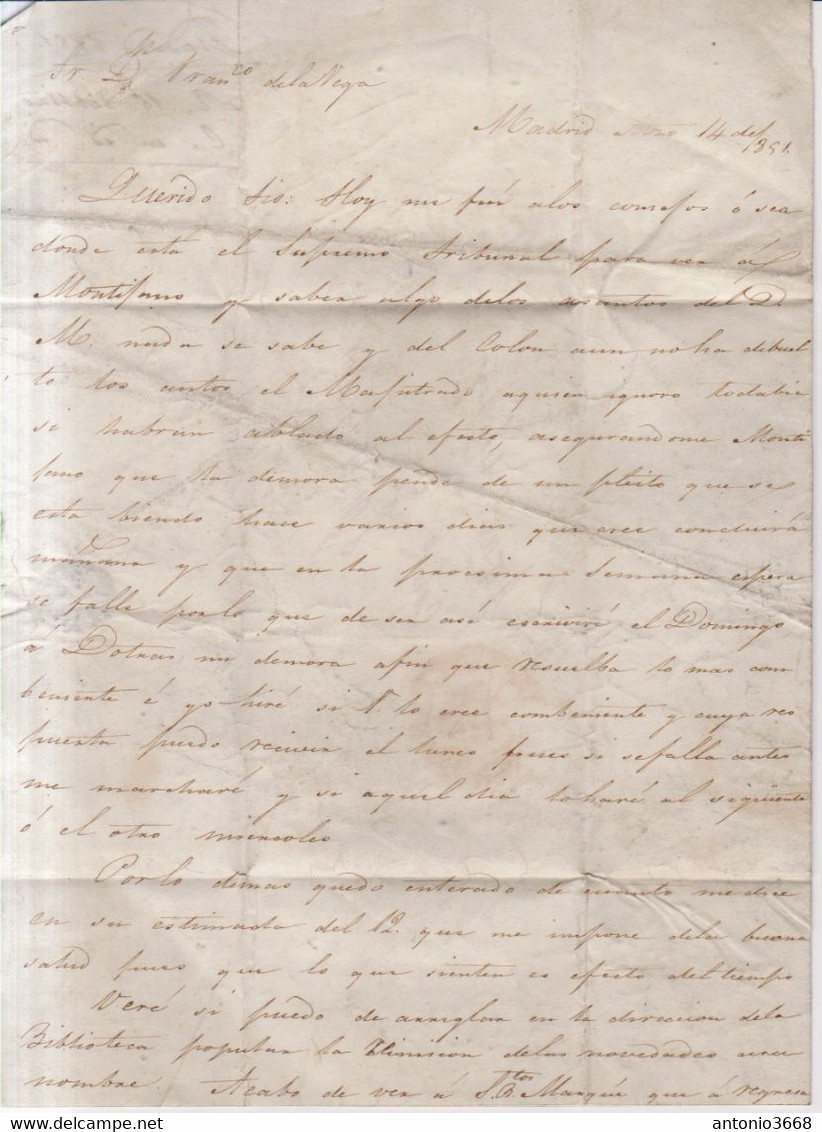 Sr. Dn. Franco. de la Vega
Madrid 14 de
1851.
Querido tio: Hoy me fui alos consejos ó sea
donde está el Supremo tribunal para ver á
Montifano y saber algo delos asuntos del D.
M. nada se sabe y del Colon aun no ha debuel
to los autos el Majistrado aquien ignoro todabia
si habran ablado al efecto, asegurandome Monti
fano que la demora pende de un pleito que se
esta biendo hace varios dias que cree concluirá
mañana y que en la procsima semana espera
se falle porlo que de ser asé escriviré el Domingo
á Dotras mi demora afin que resuelba lo mas com
beniente é yo hiré si V. lo cree combeniente y cuya res
puesta puedo recivir el lunes pues si sefalla antes
me marcharé y si aquel dia loharé al siguiente
ó el otro miercoles
Porlo demas quedo enterado de cuanto me dice
en su estimada del 12. que me impone dela buena
salud pues que lo que sienten es efecto del tiempo
Veré si puedo de arreglar en la direccion dela
Biblioteca popular la delas novedades
nombre. Acabo de ver á Marqué que á regresa
antonio3668